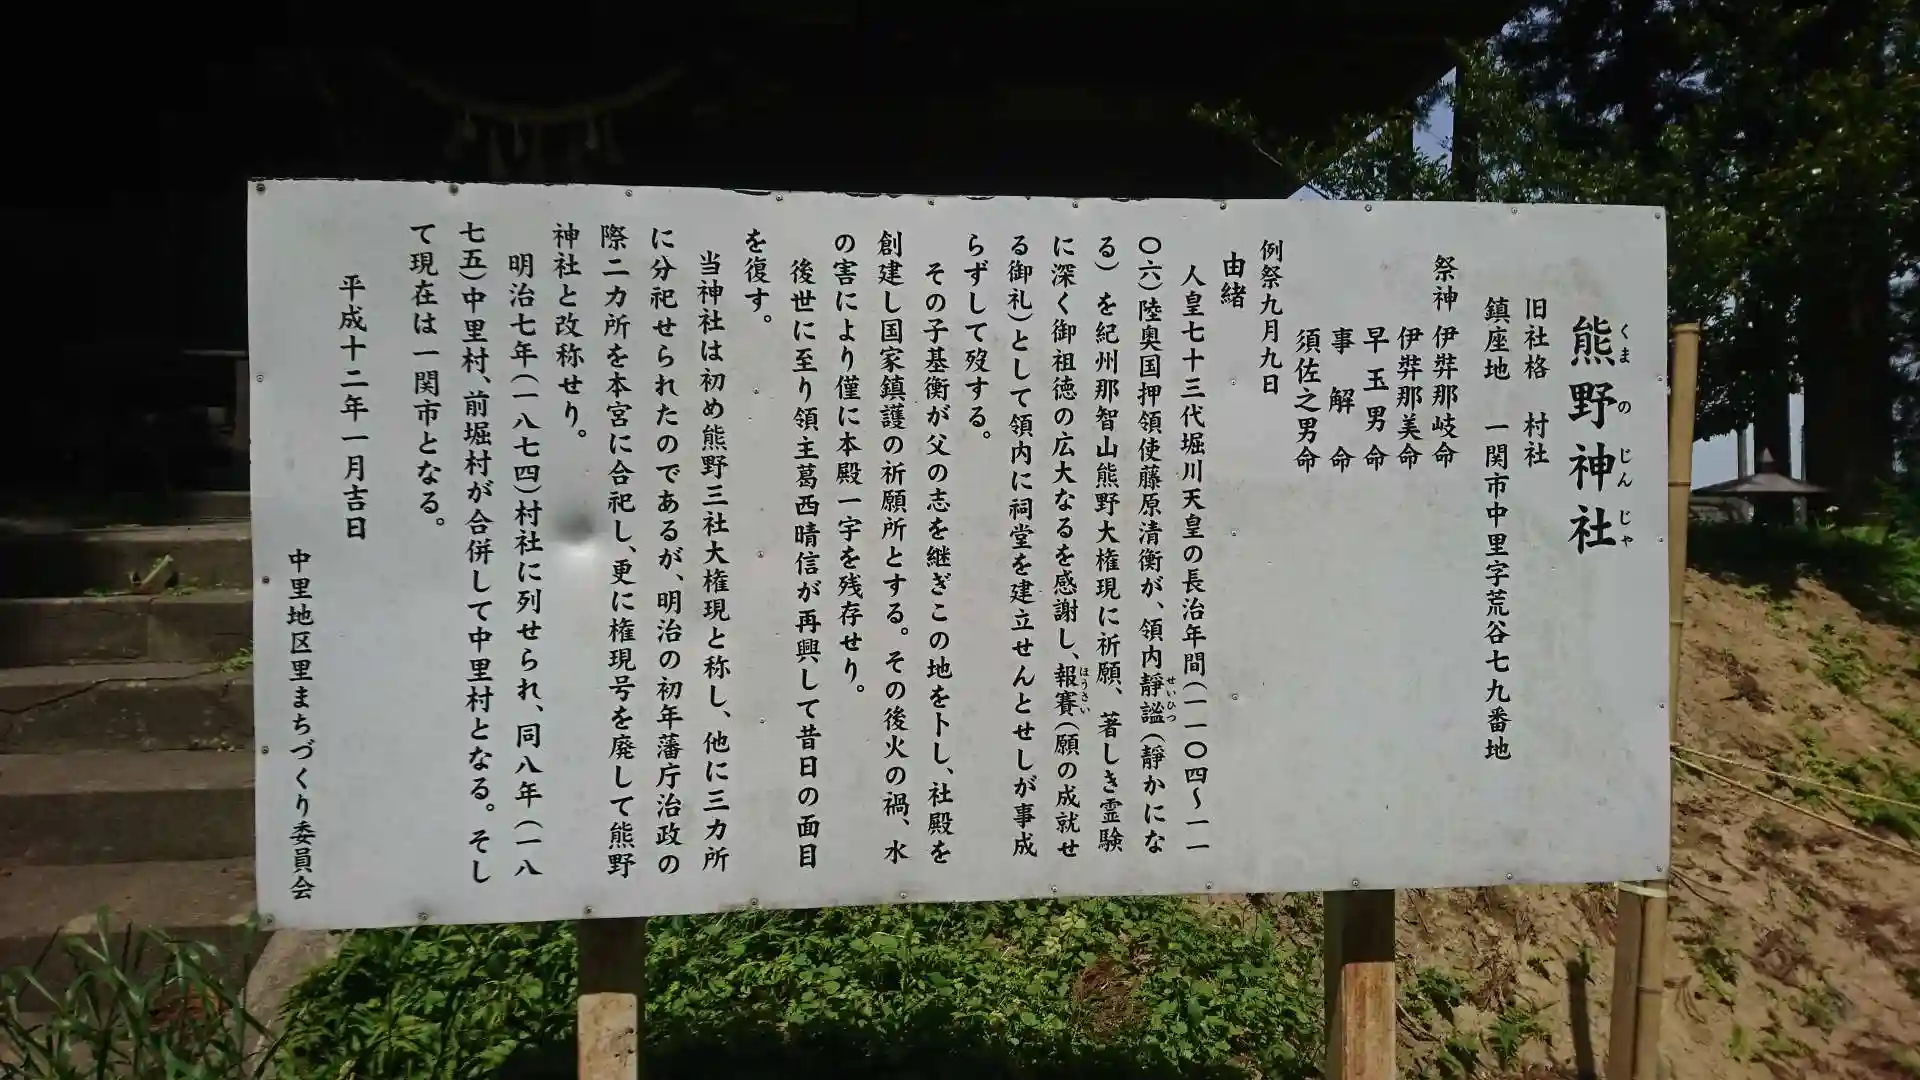 熊野神社
くまのじんじゃ
旧社格 村社
鎮座地 一関市中里字荒谷七九番地
祭神 伊弉那岐命
伊弉那美命
早玉男命
事解命
須佐之男命
例祭九月九日
由緒
人皇七十三代堀川天皇の長治年間(一一〇四〜一一
〇六)陸奥国押領使藤原清衡が、領内靜謐(靜かにな
せいひつ
る)を紀州那智山熊野大権現に祈願、著しき霊験
に深く御祖徳の広大なるを感謝し、報賽(願の成就せ
ほうさい
る御礼)として領内に祠堂を建立せんとせしが事成
らずして歿する。
その子基衡が父の志を継ぎこの地を卜し、社殿を
創建し国家鎮護の祈願所とする。その後火の禍、水
の害により僅に本殿一宇を残存せり。
後世に至り領主葛西晴信が再興して昔日の面目
を復す。
当神社は初め熊野三社大権現と称し、他に三カ所
に分祀せられたのであるが、明治の初年藩庁治政の
際二カ所を本宮に合祀し、更に権現号を廃して熊野
神社と改称せり。
明治七年(一八七四)村社に列せられ、同八年(一八
七五)中里村、前堀村が合併して中里村となる。そし
て現在は一関市となる。
平成十二年一月吉日
中里地区里まちづくり委員会